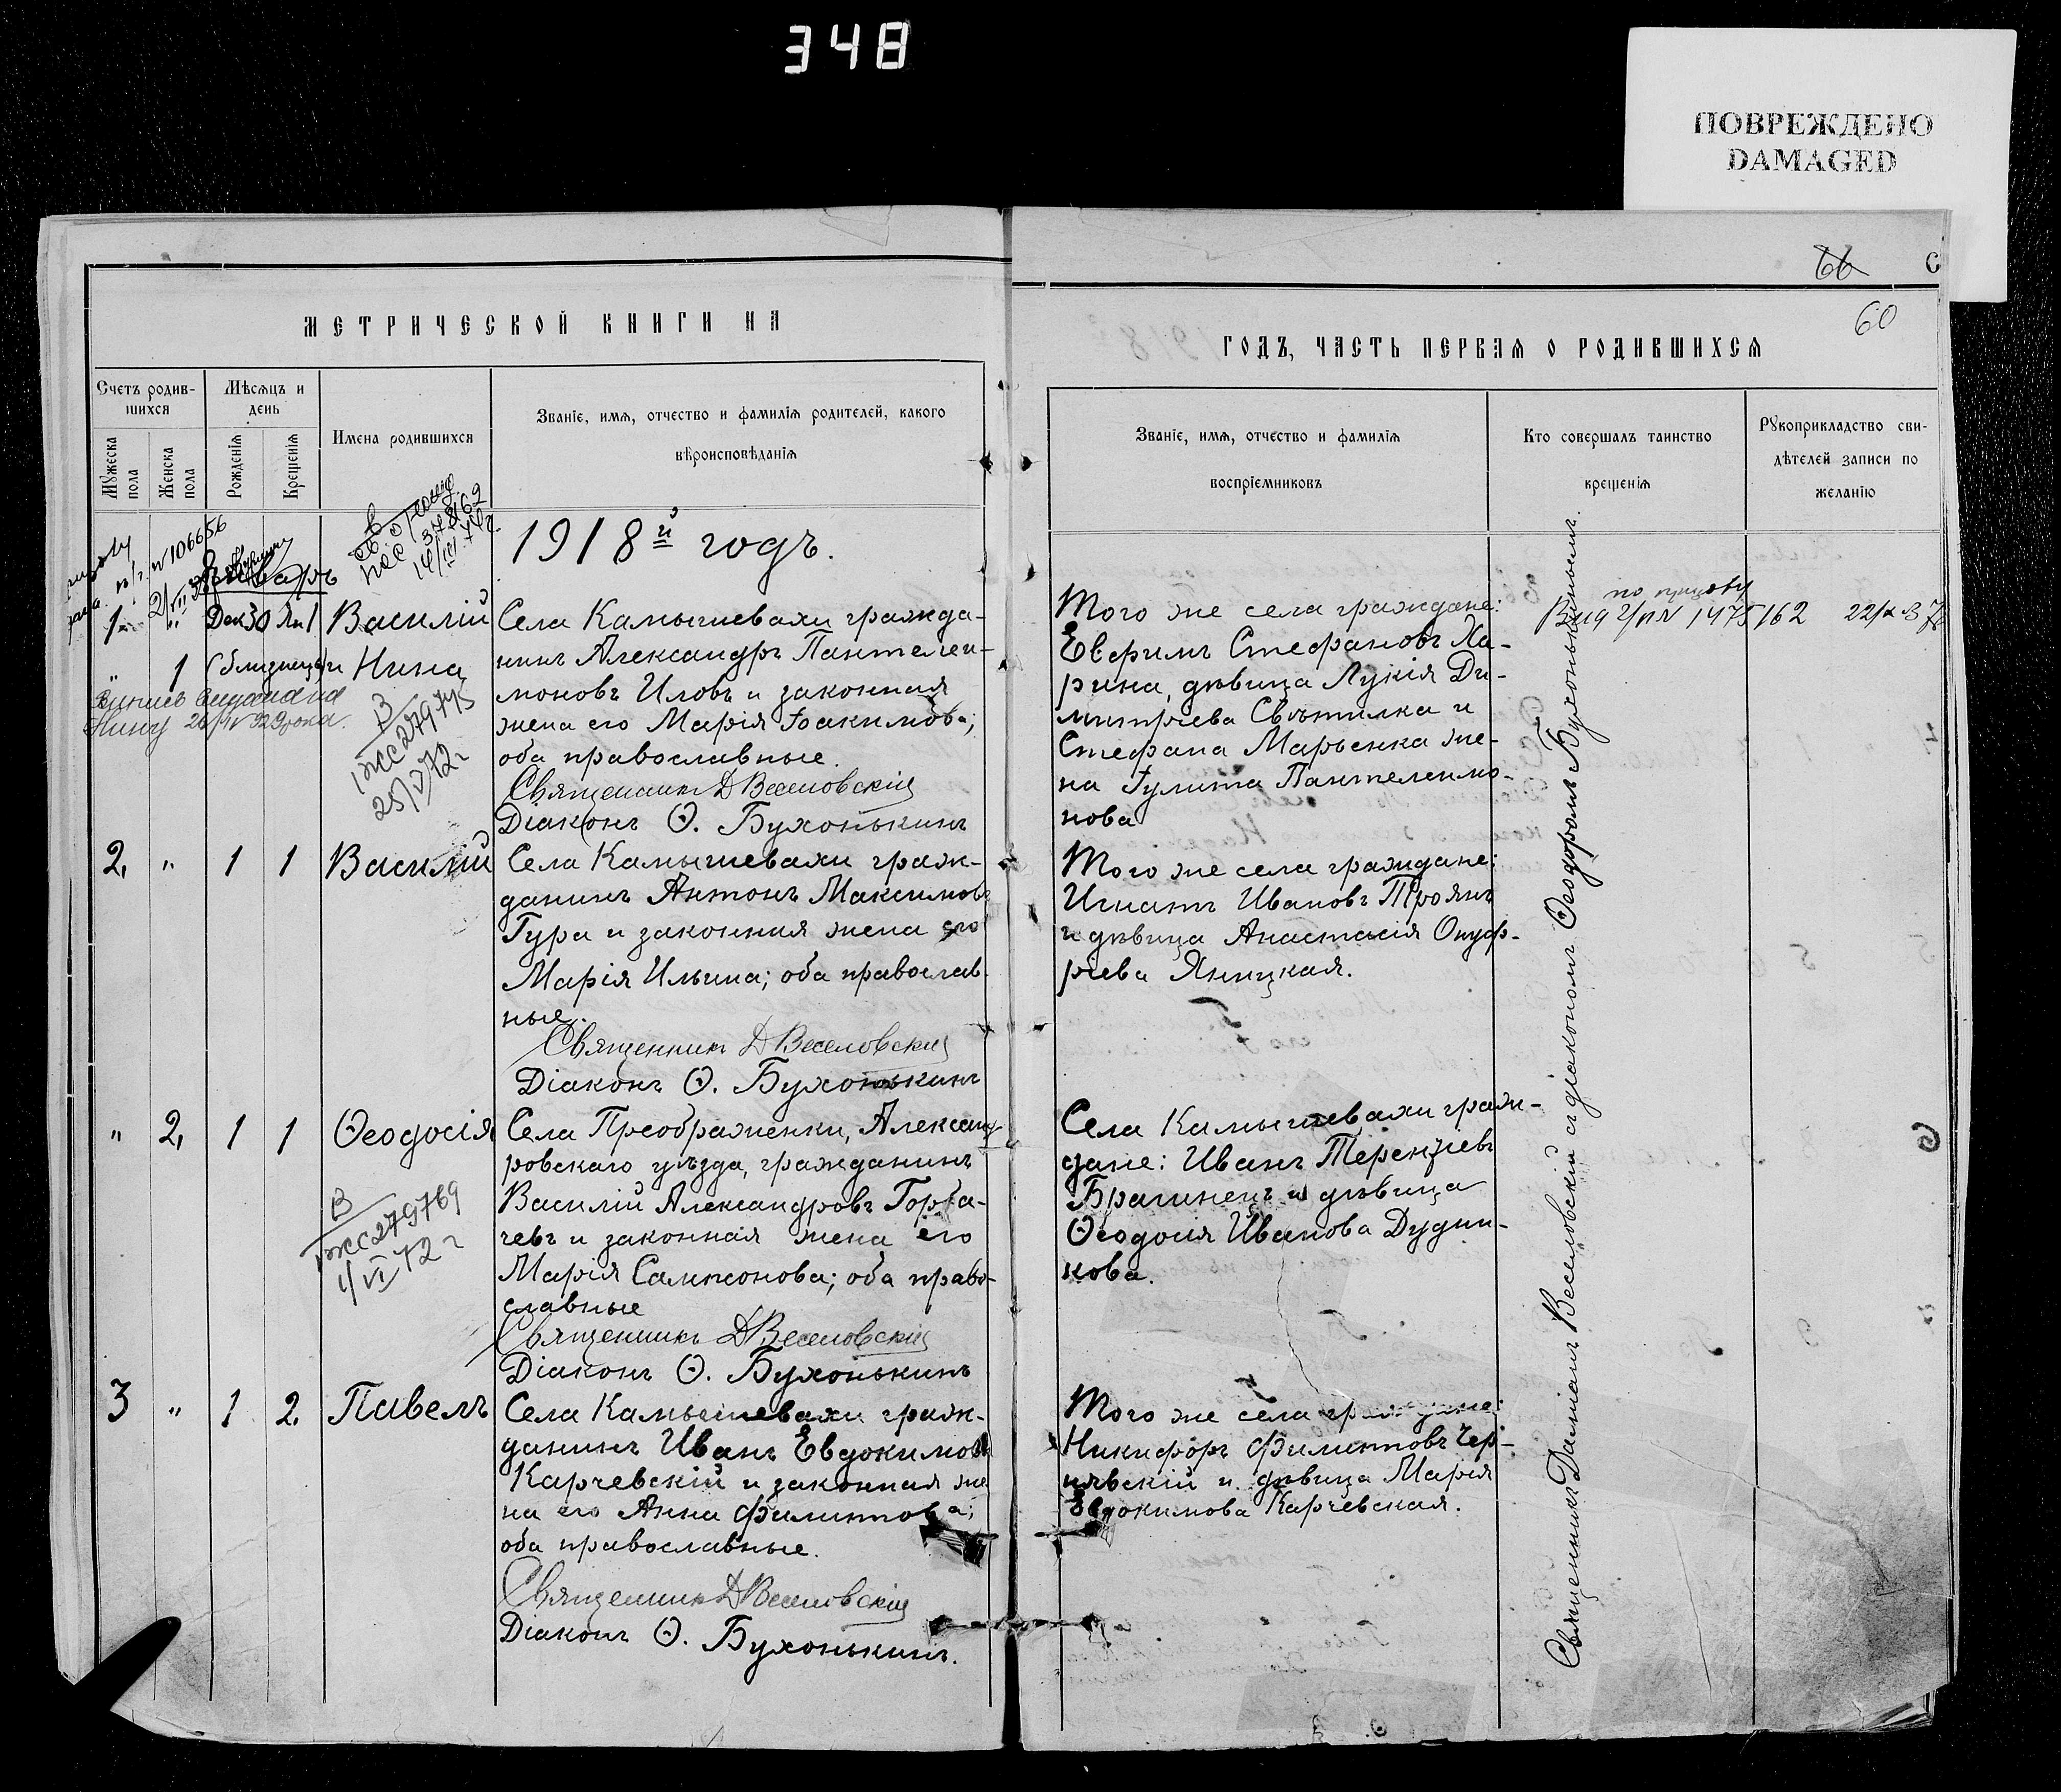 348
ПОВРЕЖДЕНО
DAMAGED
66
60
МЕТРИЧЕСКОЙ КНИГИ НА
ГОДЪ, ЧАСТЬ ПЕРВАЯ О РОДИВШИХСЯ
Счетъ родив-
шихся
Мужеска пола
Женска пола
Мѣсяцъ и
день
Рожденія
Крещенія
Имена родившихся
Званіе, имя, отчество и фамилія родителей, какого
вѣроисповѣданія
Званіе, имя, отчество и фамилія
воспріемниковъ
Кто совершалъ таинство
крещенія
Рукоприкладство сви-
дѣтелей записи по
желанію
№106656
Январь
1918й годъ.
1. Дек 30 Ян 1 Василій
" 1 (близнецы) и Нина
Нину
В
1ЖС279775
25/V 72 г
Села Камышевахи гражда-
нинъ Александръ Пантелеи-
моновъ Иловъ и законная
жена его Марія Іоакимова;
оба православные.
Священникъ Д Веселовскій
Діаконъ Ѳ. Бухонькинъ
Того же села граждане:
Евфимъ Стефановъ Ха-
рина, дѣвица Лукія Ди-
митріева Свѣтилка и
Стефана Марьенка же-
на Іулита Пантелеимо-
нова
1475162 22/X 37
2. " 1 1 Василій
Села Камышевахи граж-
данинъ Антонъ Максимовъ
Гура и законная жена его
Марія Ильина; оба православ-
ные.
Священникъ Д Веселовскій
Діаконъ Ѳ. Бухонькинъ
Того же села граждане:
Игнатъ Ивановъ Троянъ
и дѣвица Анастасія Онуф-
ріева Яницкая.
" 2. 1 1 Ѳеодосія
В
1ЖС279769
1/VI 72 г
Села Преображенки, Александ-
ровскаго уѣзда, гражданинъ
Василій Александровъ Горба-
чевъ и законная жена его
Марія Сампсонова; оба право-
славные
Священникъ Д Веселовскій
Діаконъ Ѳ. Бухонькинъ
Села Камышевахи граж-
дане: Иванъ Терентіевъ
Брагинецъ и дѣвица
Ѳеодосія Иванова Дудни-
кова.
3 " 1 2. Павелъ
Села Камышевахи граж-
данинъ Иванъ Евдокимовъ
Карчевскій и законная же
на его Анна Филиппова;
оба православные.
Священникъ Д Веселовскій
Діаконъ Ѳ. Бухонькинъ.
Того же села граждане:
Никифоръ Филипповъ Чер-
нявскій и дѣвица Марія
Евдокимова Карчевская.
Священникъ Даміанъ Веселовскій съ діакономъ Ѳеодоромъ Бухонькинымъ.